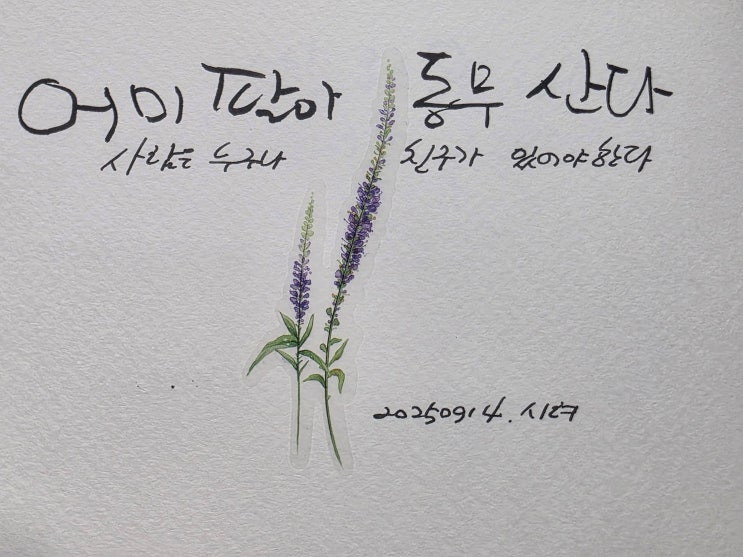 어미 팔아 동무 산다
사람은 누구나 친구가 있어야한다
20250914. 시우